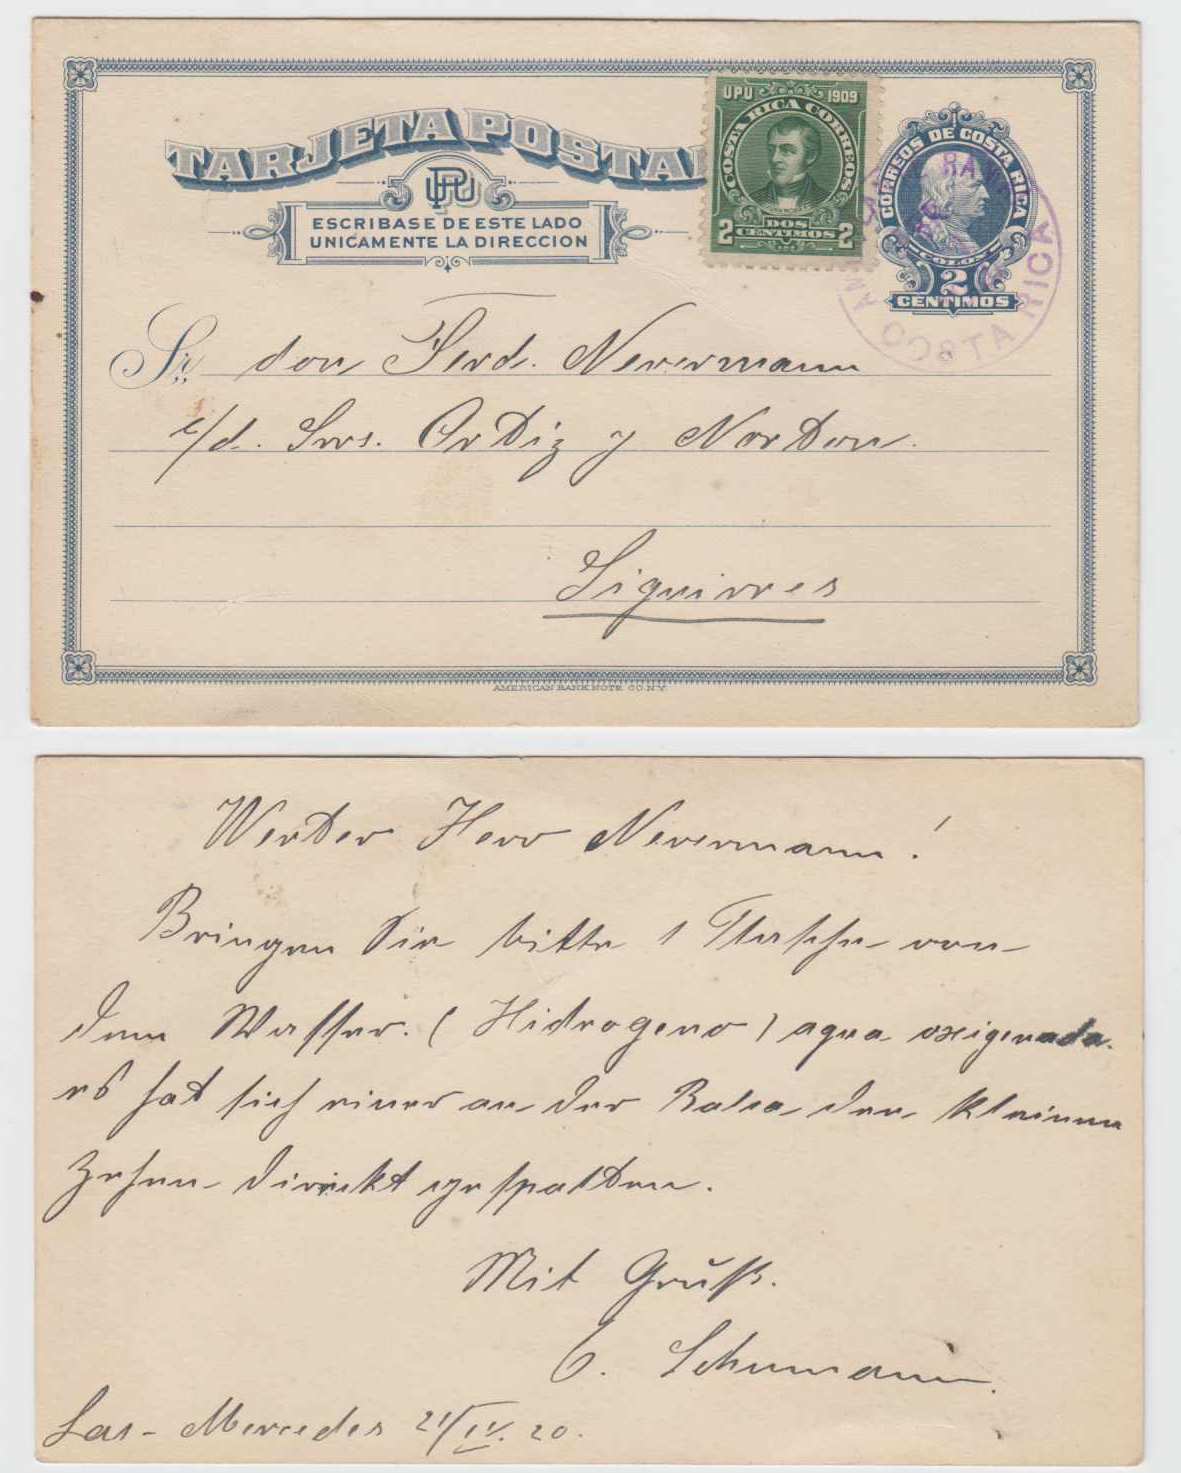 TARJETA POSTAL
UPU
ESCRIBASE DE ESTE LADO
UNICAMENTE LA DIRECCION
UPU 1909
COSTA RICA CORREOS
DOS
2 CENTIMOS 2
CORREOS DE COSTA RICA
COLON
2
CENTIMOS
COSTA RICA
Sr. don Ferd. Nevermann
c/d. Srrs. Ortiz y Norton.
Siquirres
AMERICAN BANK NOTE CO. N.Y.
Werter Herr Nevermann!
Bringen Sie bitte 1 Flasche von
dem Wasser. (Hidrogeno) agua oxigenada.
es hat sich einer an der Balsa den kleinen
Zehen direkt gespalten.
Mit Gruß.
C. Schumann.
Las-Mercedes 21/IV. 20.